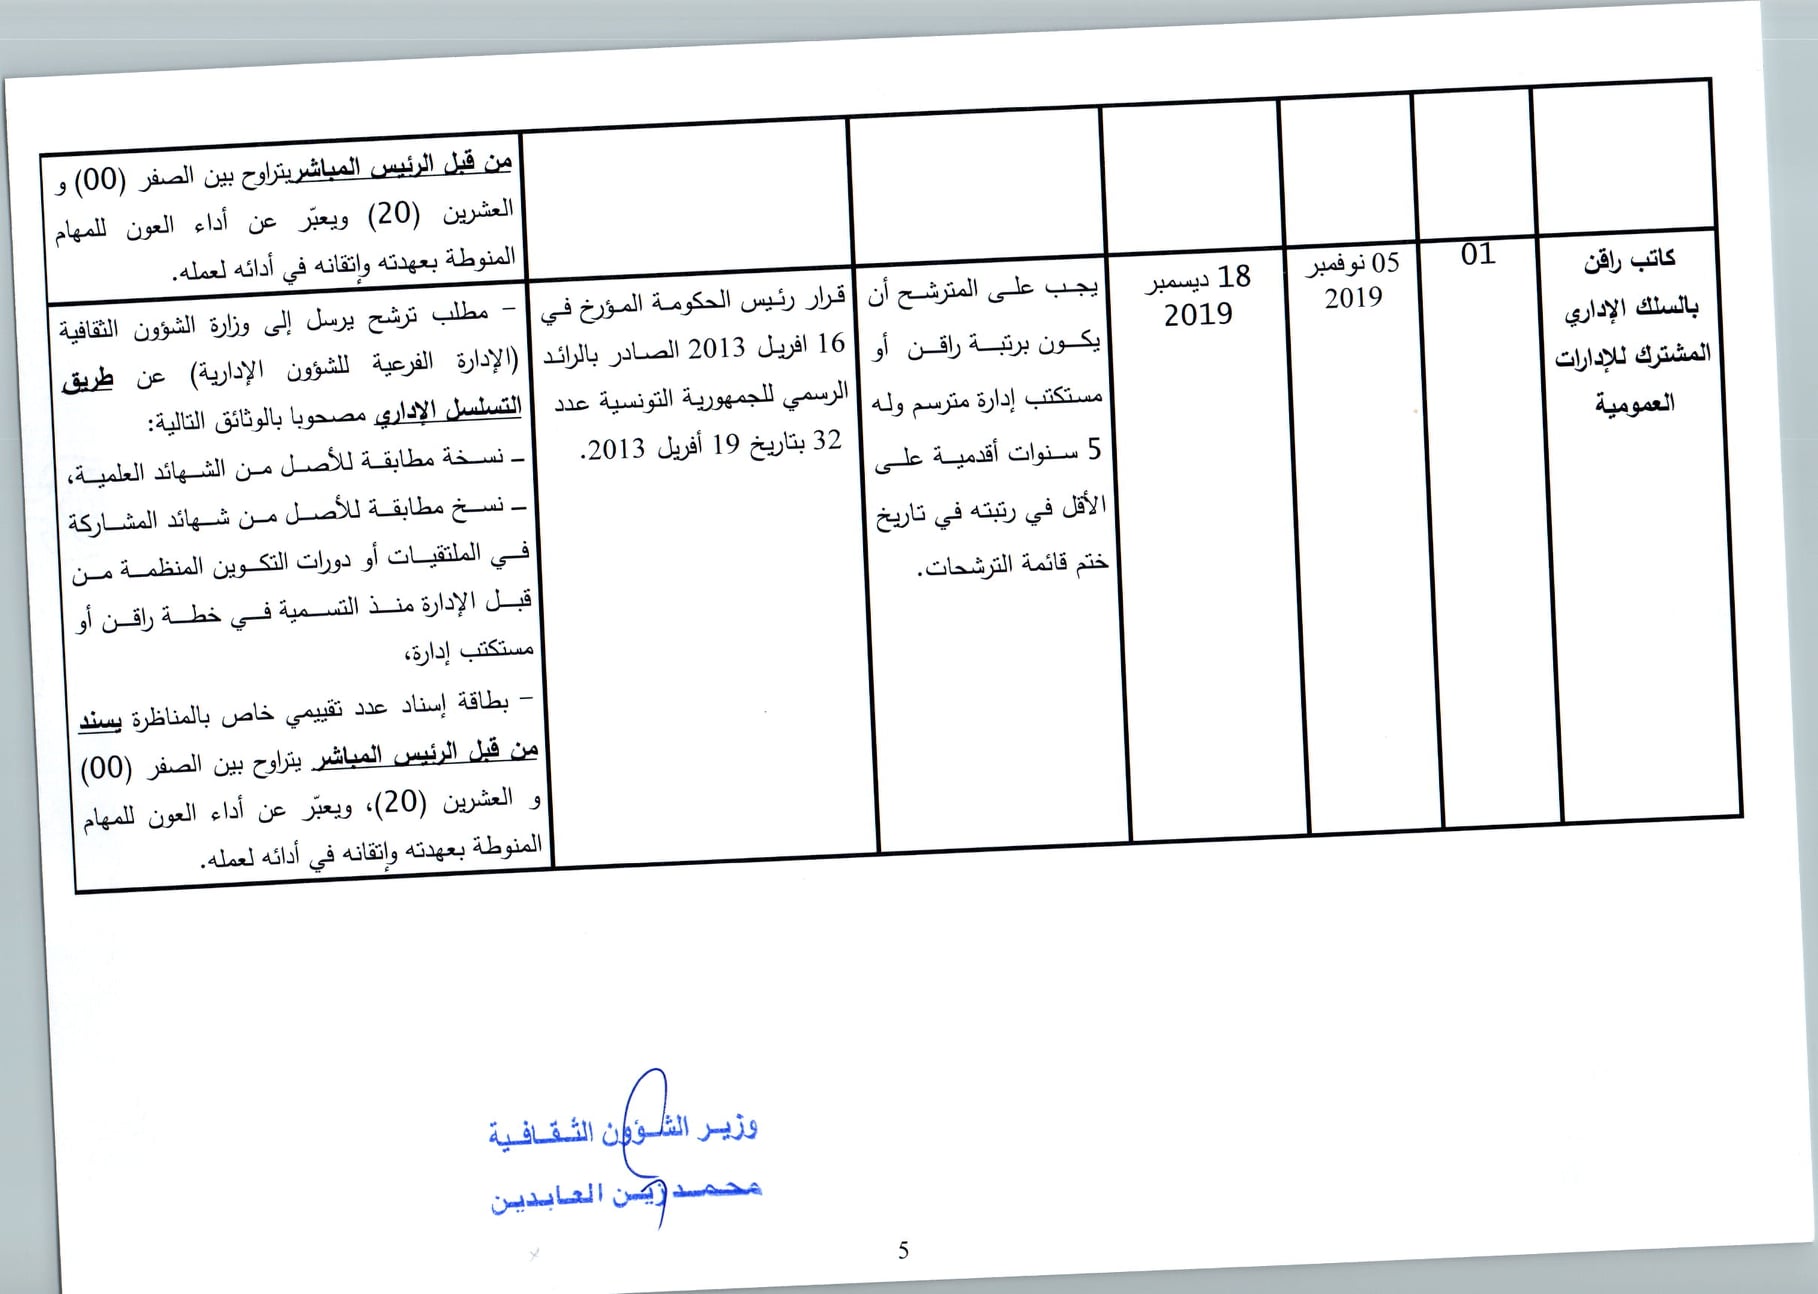 من قبل الرئيس المباشر يتراوح بين الصفر (00) و
العشرين (20) ويعبّر عن أداء العون للمهام
المنوطة بعهدته وإتقانه في أدائه لعمله.
كاتب راقن
بالسلك الإداري
المشترك للإدارات
العمومية
01
05 نوفمبر
2019
18 ديسمبر
2019
يجب على المترشح أن
يكون برتبة راقن أو
مستكتب إدارة مترسم وله
5 سنوات أقدمية على
الأقل في رتبته في تاريخ
ختم قائمة الترشحات.
قرار رئيس الحكومة المؤرخ في
16 افريل 2013 الصادر بالرائد
الرسمي للجمهورية التونسية عدد
32 بتاريخ 19 أفريل 2013.
- مطلب ترشح يرسل إلى وزارة الشؤون الثقافية
(الإدارة الفرعية للشؤون الإدارية) عن طريق
التسلسل الإداري مصحوبا بالوثائق التالية:
– نسخة مطابقة للأصل من الشهائد العلمية،
– نسخ مطابقة للأصل من شهائد المشاركة
في الملتقيات أو دورات التكوين المنظمة من
قبل الإدارة منذ التسمية في خطة راقن أو
مستكتب إدارة،
- بطاقة إسناد عدد تقييمي خاص بالمناظرة يسند
من قبل الرئيس المباشر يتراوح بين الصفر (00)
و العشرين (20)، ويعبّر عن أداء العون للمهام
المنوطة بعهدته وإتقانه في أدائه لعمله.
وزير الشؤون الثقافية
محمد زين العابدين
5